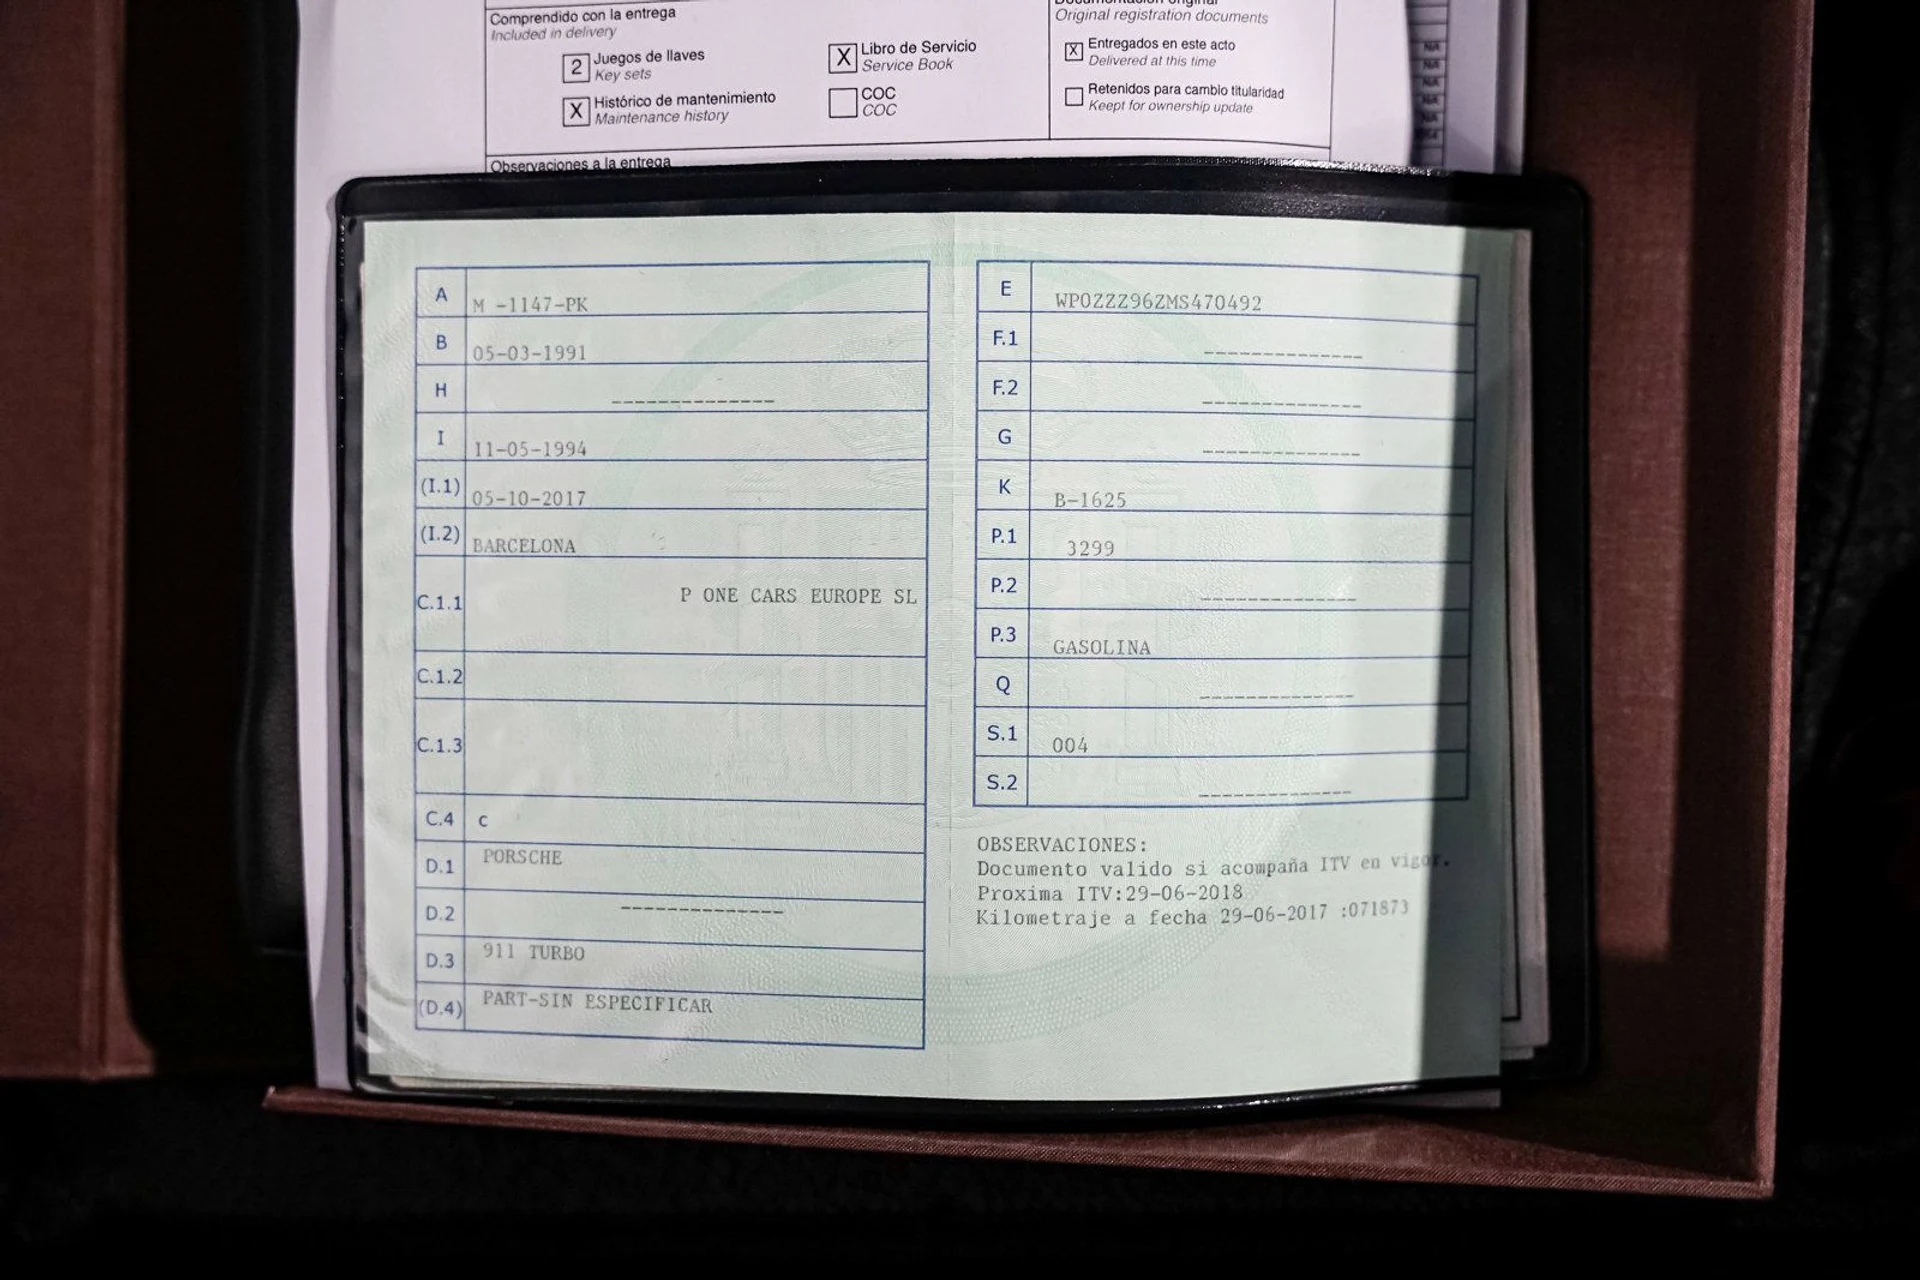 Comprendido con la entrega
Included in delivery
2 Juegos de llaves
Key sets
X Histórico de mantenimiento
Maintenance history
X Libro de Servicio
Service Book
COC
COC
Original registration documents
X Entregados en este acto
Delivered at this time
Retenidos para cambio titularidad
Keept for ownership update
Observaciones a la entrega
A M -1147-PK
B 05-03-1991
H --------------
I 11-05-1994
(I.1) 05-10-2017
(I.2) BARCELONA
C.1.1 P ONE CARS EUROPE SL
C.1.2
C.1.3
C.4 c
D.1 PORSCHE
D.2 --------------
D.3 911 TURBO
(D.4) PART-SIN ESPECIFICAR
E WP0ZZZ96ZMS470492
F.1 --------------
F.2 --------------
G --------------
K B-1625
P.1 3299
P.2 --------------
P.3 GASOLINA
Q --------------
S.1 004
S.2 --------------
OBSERVACIONES:
Documento valido si acompaña ITV en vigor.
Proxima ITV:29-06-2018
Kilometraje a fecha 29-06-2017 :071873